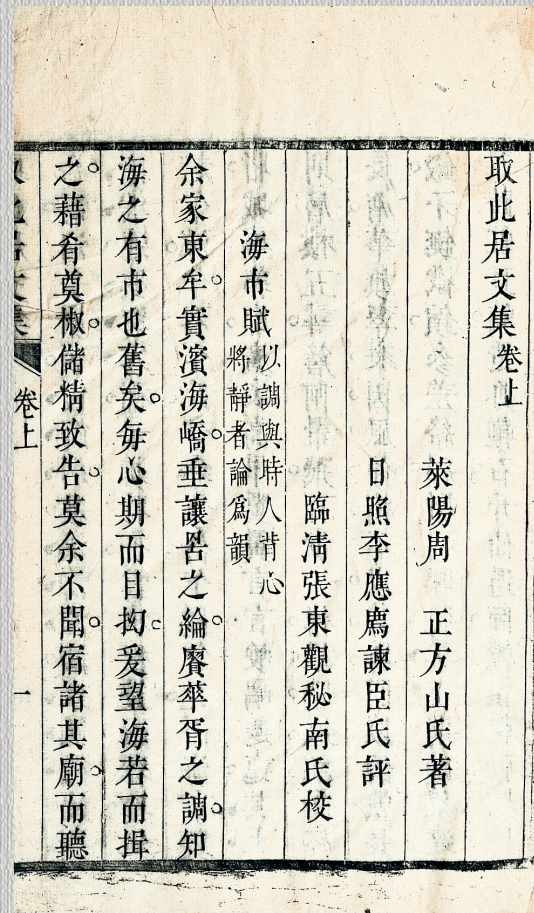 取此居文集卷上
萊陽周 正方山氏著
日照李應廌諫臣氏評
臨淸張東觀秘南氏校
海市賦以調與時人背心將靜者論爲韻
余家東牟實濱海嶠垂讓呂之綸賡華胥之調知
海之有市也舊矣每心期而目抝爰望海若而揖
之藉肴奠椒儲精致告莫余不聞宿諸其廟而聽
取此居文集 卷上 一